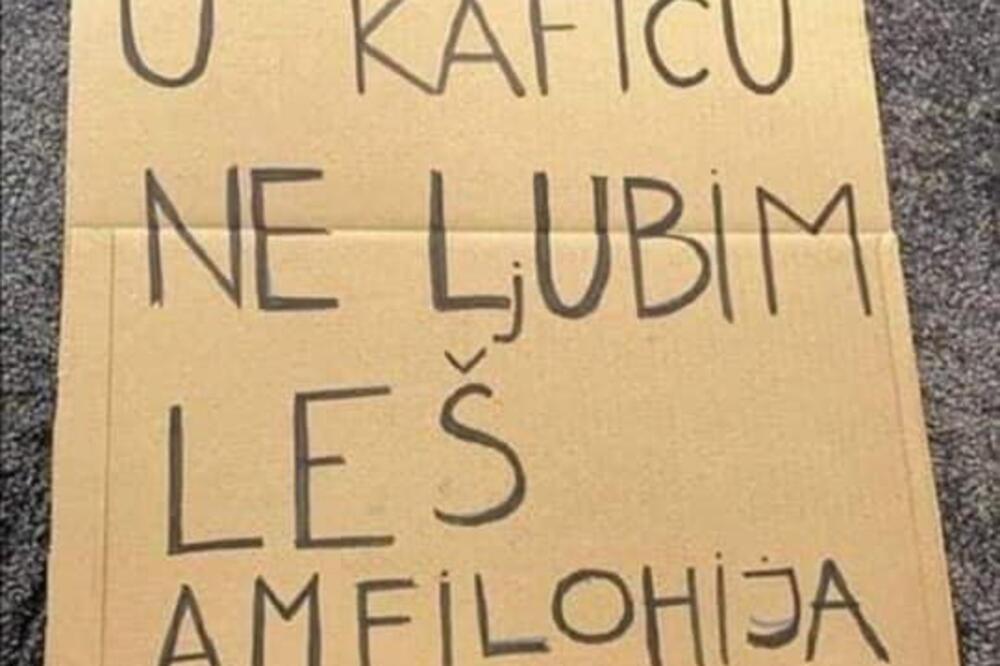 U KAFIĆU
NE LjUBIM
LEŠ
AMFILOHIJA